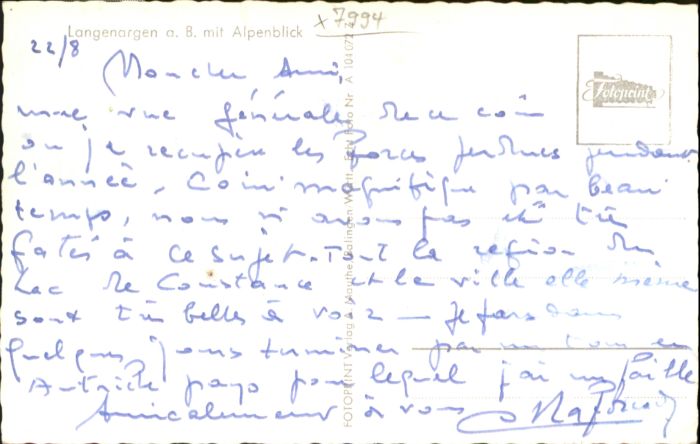 Langenargen a. B. mit Alpenblick
x 7994
22/8
Mon cher Ami,
une vue générale de ce coin
où je recupère les forces perdues pendant
l'année. Coin magnifique par beau
temps, nous n'avons pas été très
gatés à ce sujet. Tout la région du
Lac de Constance et la ville elle même
sont très belles à voir — Je
quelques jours terminer par un tour en
Autriche pays pour lequel j'ai un faible
Amicalement à vous
Fotoprint
FOTOPRINT Verlag A. Mauthe Balingen Württ. Foto Nr. A 104072